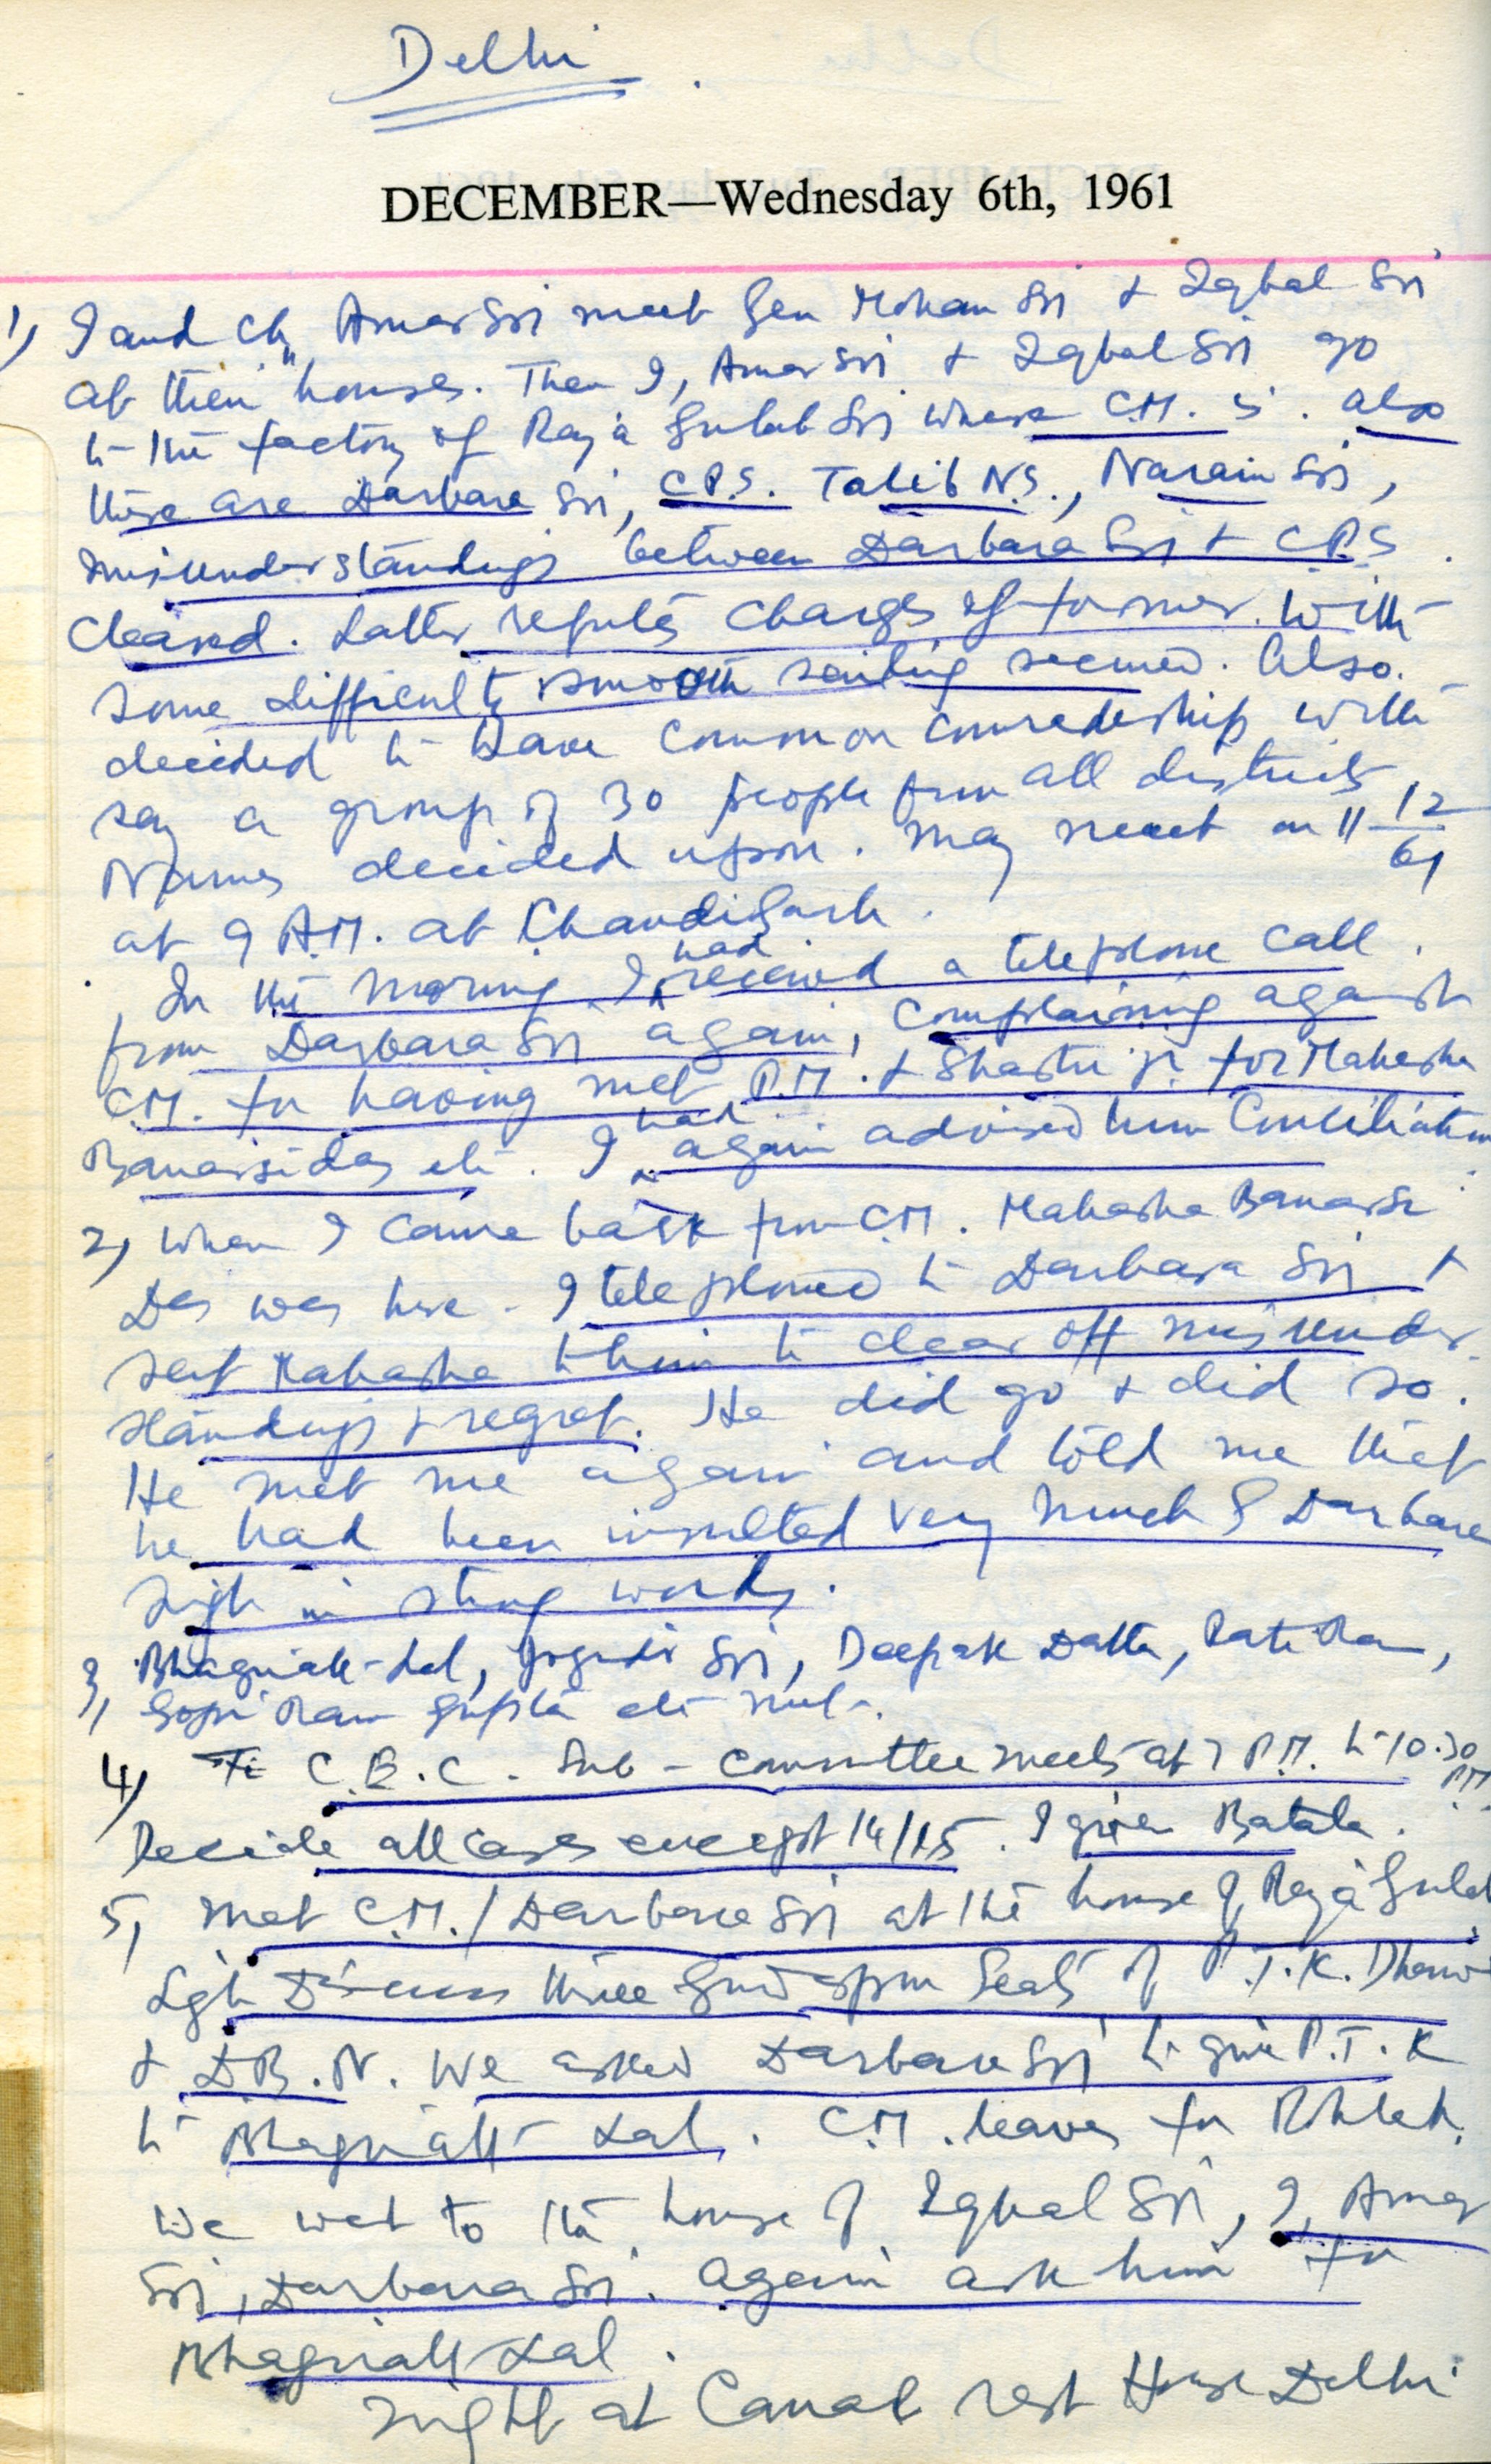 Delhi
DECEMBER—Wednesday 6th, 1961
1) I and Ch. Amar Sri meet Gen Mohan Sri & Iqbal Sri
at their houses. Then I, Amar Sri & Iqbal Sri go
to the factory of Raja Gulab Sri where C.M. is. also
there are Darbara Sri, C.P.S. Talib N.S., Narain Sri,
misunderstandings between Darbara Sri & C.P.S
cleared. Latter refutes charges of former. With
some difficulty smooth sailing seemed. Also
decided to have common comradeship with
say a group of 30 people from all districts
Names decided upon. May meet on 11 12/61
at 9 A.M. at Chandigarh.
In the morning I had received a telephone call
from Darbara Sri again, complaining against
C.M. for having met P.M. & Shastri ji for Mahasha
Banarsidas etc. I had again advised him Conciliation
2) When I came back from C.M. Mahasha Banarsi
Das was here. I telephoned to Darbara Sri &
sent Mahasha to him to clear off misunder
standings & regret. He did go & did so.
He met me again and told me that
he had been insulted very much by Darbara
Singh in strong words.
3) Bhagwatt-Lal, Sri, Deepak Datta, Rati Ram,
Gopi Ram Gupta etc met.
4) The C.E.C. Sub-committee meets at 7 P.M. to 10.30 PM
Decide all cases except 14/15. I given Batala.
5) Met C.M./Darbara Sri at the house of Raja Gulab
Sgh Discuss three Gurdaspur Seats of P.T.K. Dhariwal
& D.B.N. We asked Darbara Sri to give P.T.K
to Bhagwatt Lal. C.M. leaves for Rhtak.
We went to the house of Iqbal Sri, I, Amar
Sri, Darbara Sri. again ask him for
Bhagwatt Lal.
night at Canal rest House Delhi